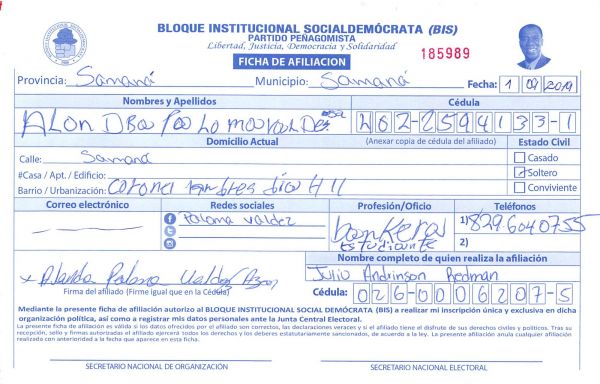 BLOQUE INSTITUCIONAL SOCIALDEMÓCRATA (BIS)
PARTIDO PEÑAGOMISTA
Libertad, Justicia, Democracia y Solidaridad
FICHA DE AFILIACION
185989
Provincia: Samaná Municipio: Samaná Fecha: 1 09 2019
Nombres y Apellidos Cédula
402-2594133-1
Domicilio Actual (Anexar copia de cédula del afiliado) Estado Civil
Calle: Samana Casado
#Casa / Apt. / Edificio: Soltero
Barrio / Urbanización: Conviviente
Correo electrónico Redes sociales Profesión/Oficio Teléfonos
paloma valdez
bankera
Estudiante
1) 829.6040755
2)
Nombre completo de quien realiza la afiliación
Julio Andrinson Redman
Firma del afiliado (Firme igual que en la Cédula) Cédula: 026-0006207-5
Mediante la presente ficha de afiliación autorizo al BLOQUE INSTITUCIONAL SOCIAL DEMÓCRATA (BIS) a realizar mi inscripción única y exclusiva en dicha
organización política, así como a registrar mis datos personales ante la Junta Central Electoral.
La presente ficha de afiliación es válida si los datos ofrecidos por el afiliado son correctos, las declaraciones veraces y si el afiliado tiene el disfrute de sus derechos civiles y políticos. Tras su
recepción, sello y firmas autorizadas el afiliado ejercerá todos los derechos y los deberes estatutariamente sancionados, de acuerdo a la ley. La presente afiliación anula cualquier afiliación
realizada con anterioridad a la fecha que aparece en esta ficha.
SECRETARIO NACIONAL DE ORGANIZACIÓN SECRETARIO NACIONAL ELECTORAL